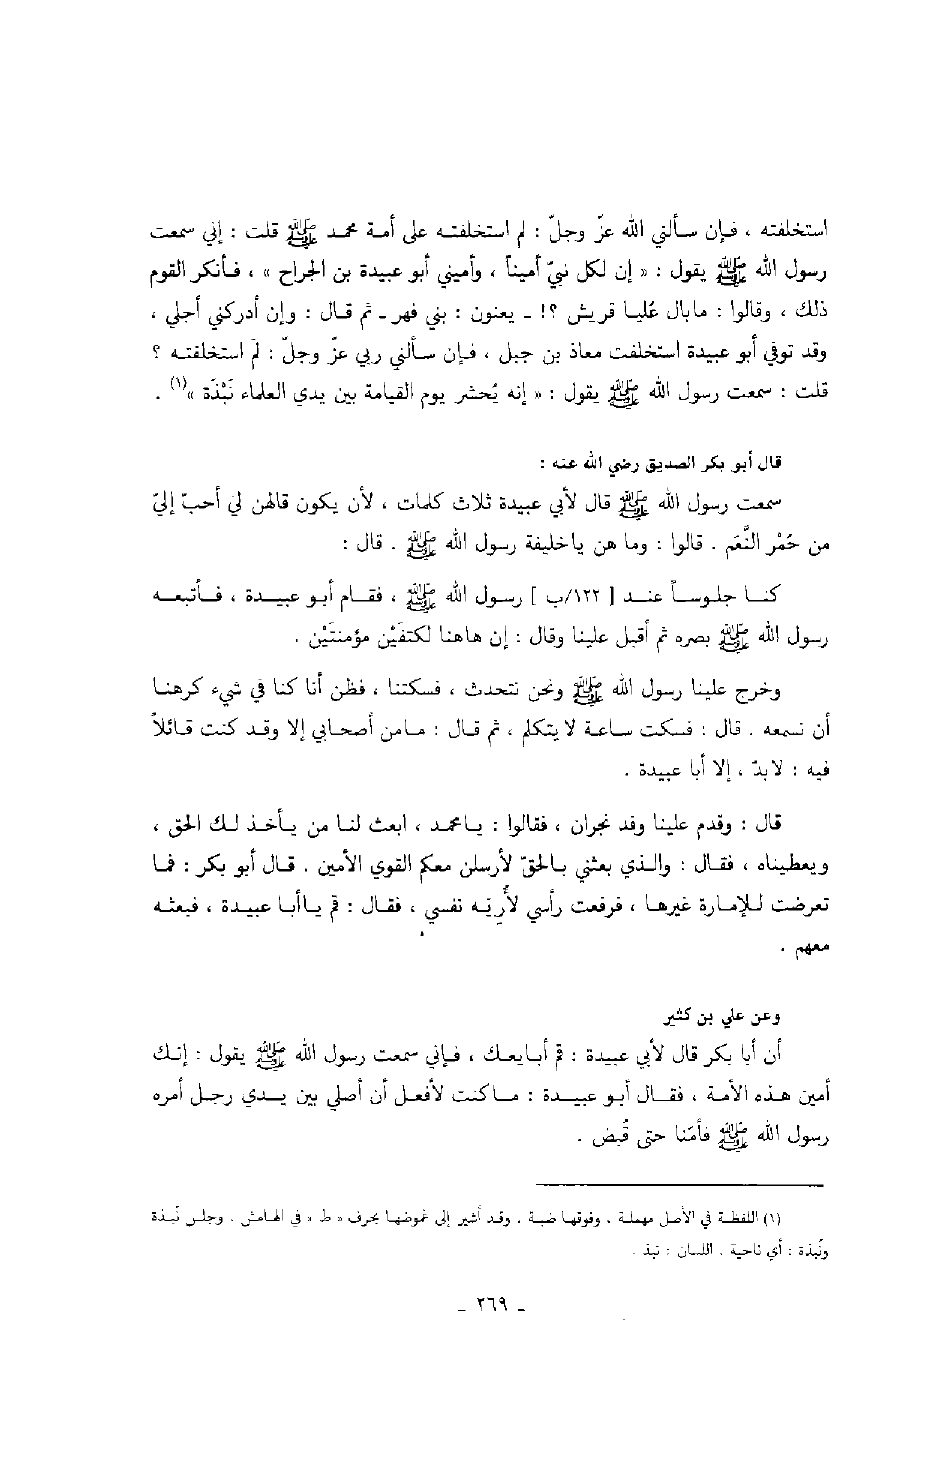 استخلفته ، فإن سألني الله عزّ وجلّ : لم استخلفته على أمة محمد ﷺ قلت : إني سمعت
رسول الله ﷺ يقول : « إن لكل نبيّ أميناً ، وأميني أبو عبيدة بن الجراح » ، فأنكر القوم
ذلك ، وقالوا : مابال عُليا قريش ؟! ـ يعنون : بني فهر ـ ثم قال : وإن أدركني أجلي ،
وقد توفي أبو عبيدة استخلفت معاذ بن جبل ، فإن سألني ربي عزّ وجلّ : لمَ استخلفته ؟
قلت : سمعت رسول الله ﷺ يقول : « إنه يُحشر يوم القيامة بين يدي العلماء نَبْذَة »(١) .
قال أبو بكر الصديق رضي الله عنه :
سمعت رسول الله ﷺ قال لأبي عبيدة ثلاث كلمات ، لأن يكون قالهن لي أحبّ إليّ
من حُمْر النَّعَم . قالوا : وما هن ياخليفة رسول الله ﷺ . قال :
كنا جلوساً عند [ ١٢٢/ب ] رسول الله ﷺ ، فقام أبو عبيدة ، فأتبعه
رسول الله ﷺ بصره ثم أقبل علينا وقال : إن هاهنا لكتفَيْن مؤمنتَيْن .
وخرج علينا رسول الله ﷺ ونحن نتحدث ، فسكتنا ، فظن أنا كنا في شيء كرهنا
أن نسمعه . قال : فسكت ساعة لا يتكلم ، ثم قال : مامن أصحابي إلا وقد كنت قائلاً
فيه : لابدّ ، إلا أبا عبيدة .
قال : وقدم علينا وفد نجران ، فقالوا : يامحمد ، ابعث لنا من يأخذ لك الحق ،
ويعطيناه ، فقال : والذي بعثني بالحقّ لأرسلن معكم القوي الأمين . قال أبو بكر : فما
تعرضت للإمارة غيرها ، فرفعت رأسي لأُرِيَه نفسي ، فقال : قم ياأبا عبيدة ، فبعثه
معهم .
وعن علي بن كثير
أن أبا بكر قال لأبي عبيدة : قم أبايعك ، فإني سمعت رسول الله ﷺ يقول : إنك
أمين هذه الأمة ، فقال أبو عبيدة : ماكنت لأفعل أن أصلي بين يدي رجل أمره
رسول الله ﷺ فأمّنا حتى قُبض .
(١) اللفظة في الأصل مهملة ، وفوقها ضبة ، وقد أشير إلى غموضها بحرف « ط » في الهامش . وجلس نَبذة
ونُبذة : أي ناحية . اللسان : نبذ .
ـ ٢٦٩ ـ